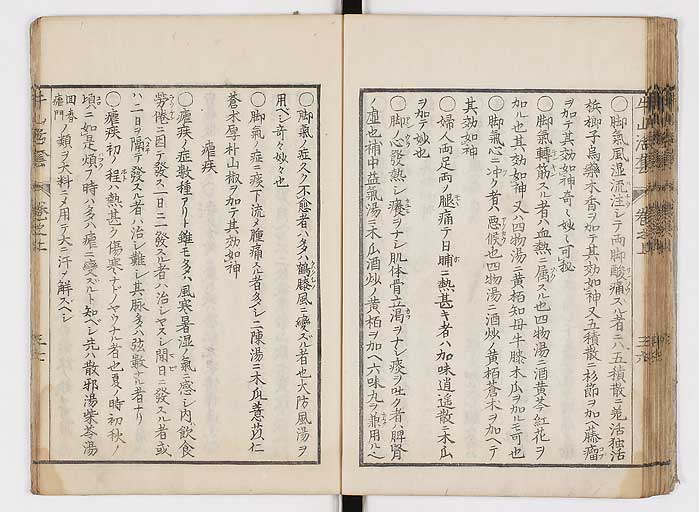 ◯脚氣風湿流注シテ両脚酸痛スル者ニハ五積散ニ羌活独活
梹榔子烏藥木香ヲ加テ其効如神又五積散ニ杉節ヲ加ヘ膝瘤
ヲ加テ其効如神奇々妙々可秘
◯脚氣轉筋スル者ハ血熱ニ属スル也四物湯ニ酒黄芩紅花ヲ
加ル也其効如神又ハ四物湯ニ黄栢知母牛膝木瓜ヲ加ルモ可也
◯脚氣心ニ冲ク者ハ悪候也四物湯ニ酒炒ノ黄栢蒼木ヲ加ヘテ
其効如神
◯婦人両足両ノ腿痛テ日晡ニ熱甚キ者ハ加味逍遥散ニ木瓜
ヲ加テ妙也
◯脚ノ心發熱シ痿ヲナシ肌体骨立渇ヲナシ痰ヲ吐ク者ハ脾腎
ノ虚也補中益氣湯ニ木瓜酒炒ノ黄栢ヲ加ヘ六味丸ヲ兼用ルヘ
◯脚氣ノ症久ク不愈者ハ多ハ鶴膝風ニ變ズル者也大防風湯ヲ
用ベシ奇々妙々也
◯脚氣ノ症ニ痰下流ノ腫痛スル者多シ二陳湯ニ木瓜薏苡仁
蒼木厚朴山椒ヲ加テ其効如神
瘧疾
◯瘧疾ノ症數種アリト雖モ多ハ風寒暑湿ノ氣ニ感シ内飲食
勞倦ニ因テ發ス一日ニ一發スル者ハ治シヤスシ間日ニ發スル者或
ハ二日ヲ隔テ發スル者ハ治シ難シ其脉多ハ弦數ナル者ナリ
◯瘧疾初ノ程ハ熱甚ク傷寒ナドノヤウナル者也夏ノ時初秋ノ
頃ニ如是煩フ時ハ多ハ瘧ニ變ズルト知ベシ先ハ散邪湯柴苓湯
回春瘧門ノ類ヲ大料ニメ用テ大ニ汗ヲ解ズベシ